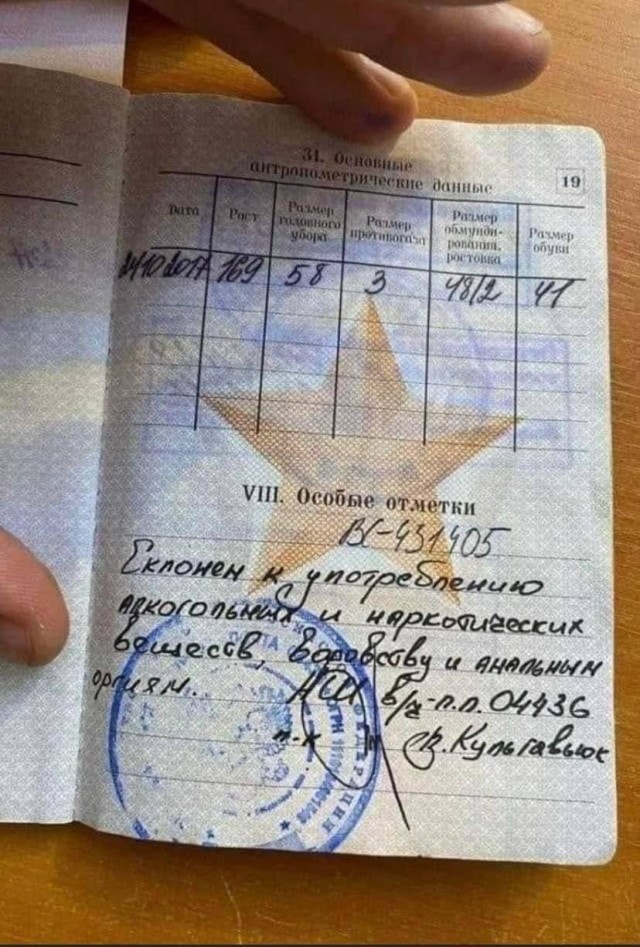 31. Основные
антропометрические данные
19
Дата Рост Размер головного убора Размер противогаза Размер обмундирования, ростовка Размер обуви
24102017 169 58 3 48/2 41
VIII. Особые отметки
ВС-431405
Склонен к употреблению
алкогольных и наркотических
веществ, воровству и анальным
оргиям. НШ в/ч-п.п. 04436
п-к Кульгавьюк